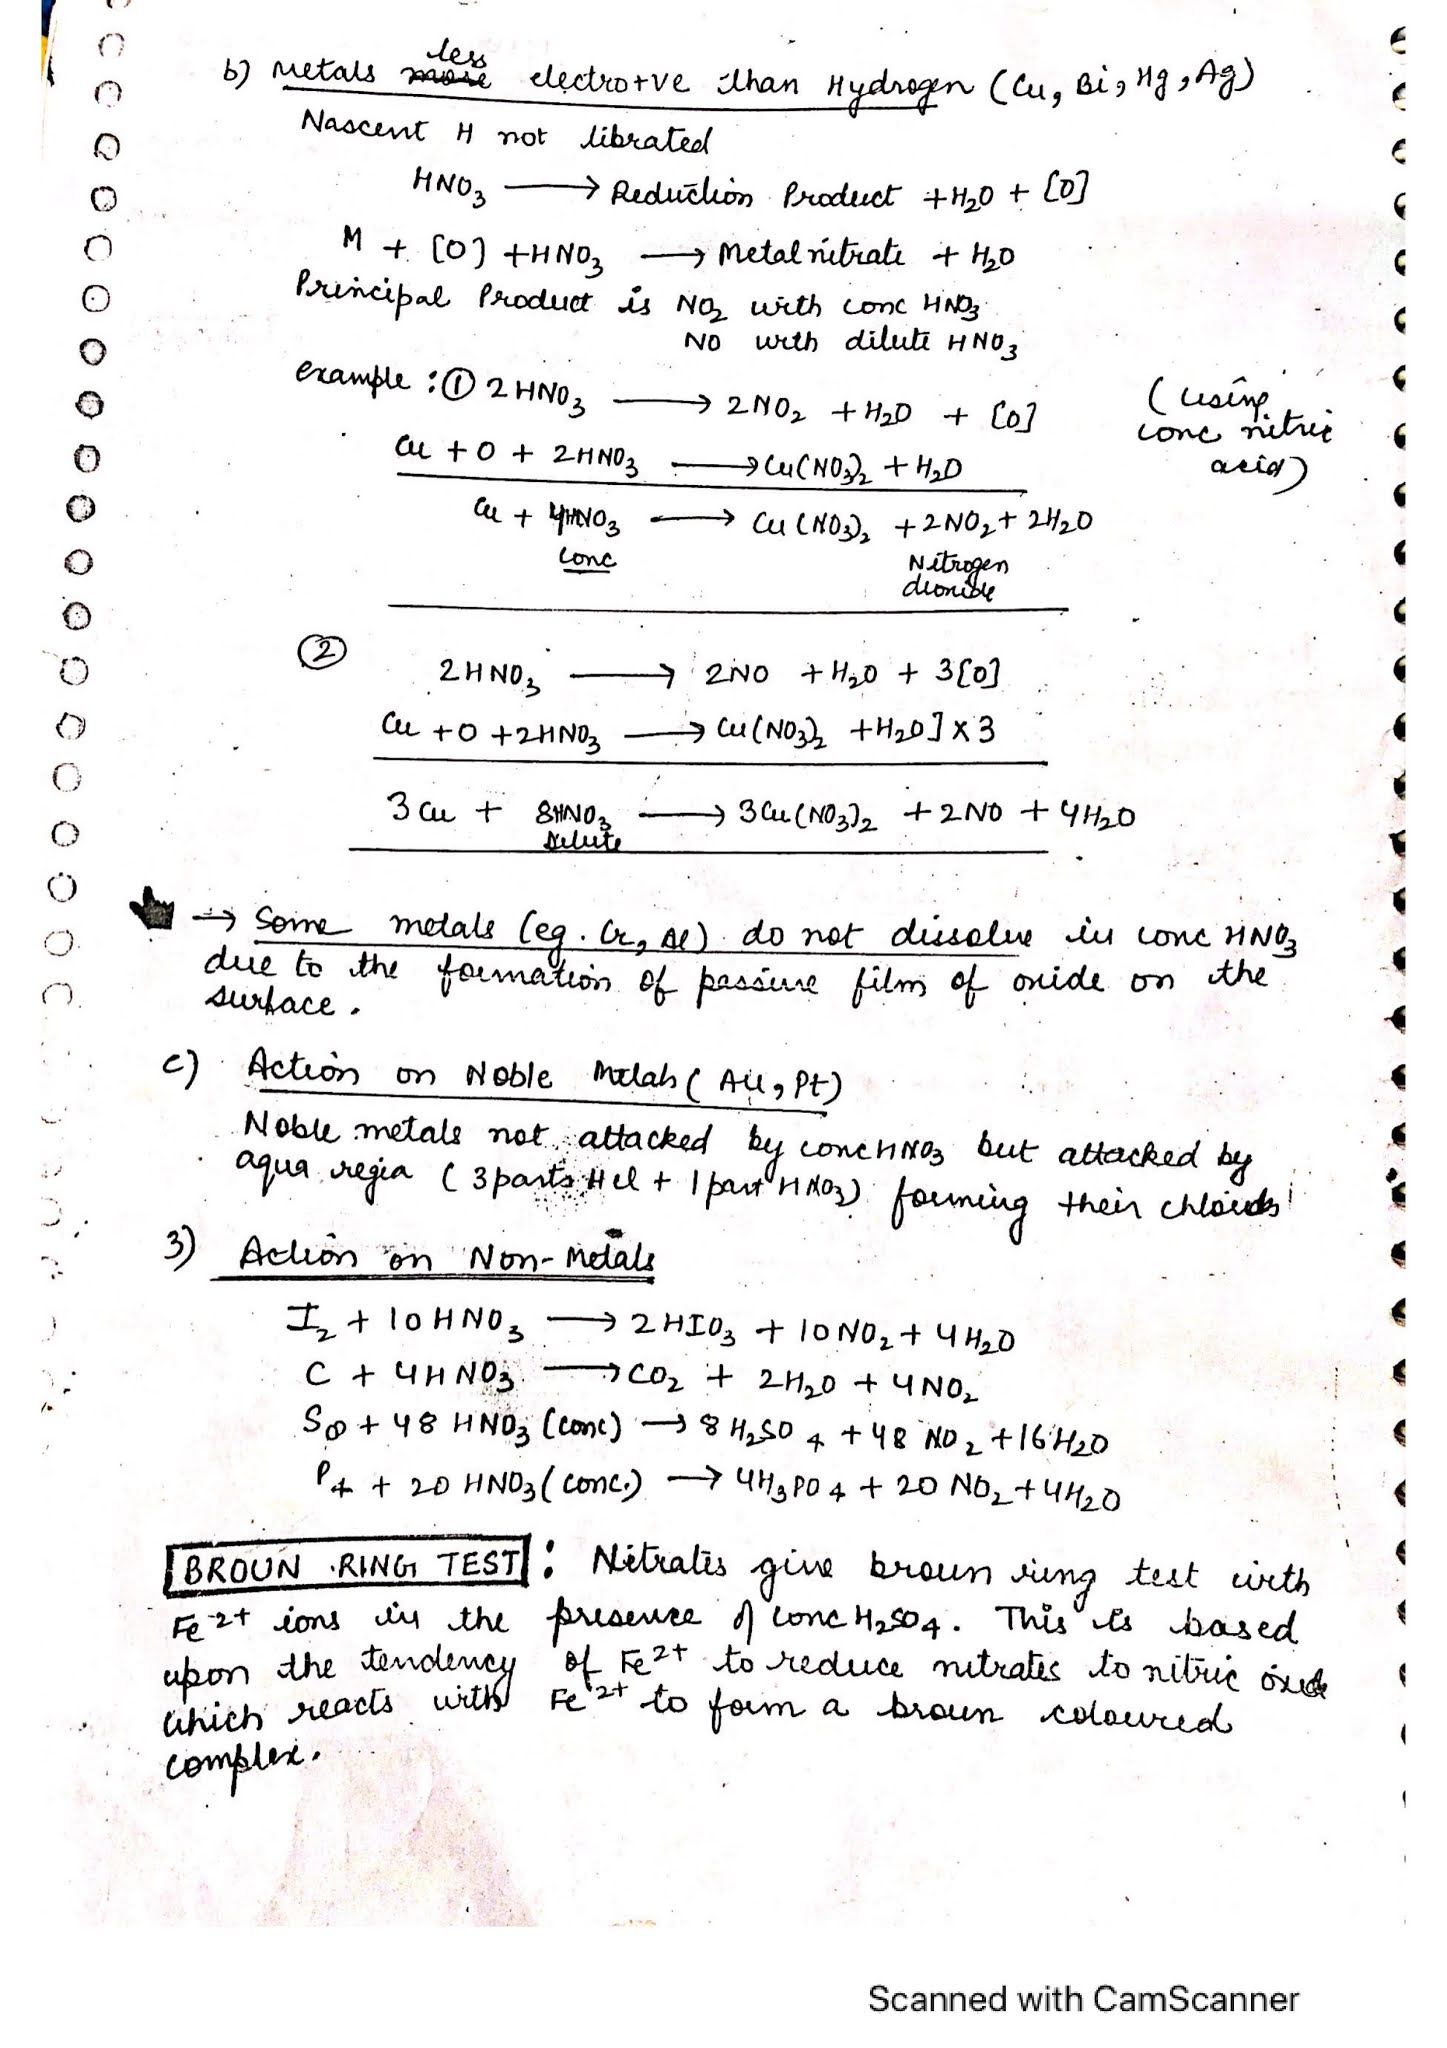 less
b) Metals more electro+ve than Hydrogen (Cu, Bi, Hg, Ag)
Nascent H not librated
HNO3 ⟶ Reduction Product + H2O + [O]
M + [O] + HNO3 ⟶ Metal nitrate + H2O
Principal Product is NO2 with conc HNO3
NO with dilute HNO3
example : ① 2HNO3 ⟶ 2NO2 + H2O + [O] (using conc nitric acid)
Cu + O + 2HNO3 ⟶ Cu(NO3)2 + H2O
Cu + 4HNO3 ⟶ Cu(NO3)2 + 2NO2 + 2H2O
conc Nitrogen
dioxide
② 2HNO3 ⟶ 2NO + H2O + 3[O]
Cu + O + 2HNO3 ⟶ Cu(NO3)2 + H2O] x 3
3Cu + 8HNO3 ⟶ 3Cu(NO3)2 + 2NO + 4H2O
Dilute
→ Some metals (eg. Cr, Al) do not dissolve in conc HNO3
due to the formation of passive film of oxide on the
surface.
c) Action on Noble Metals (Au, Pt)
Noble metals not attacked by conc HNO3 but attacked by
aqua regia (3 parts HCl + 1 part HNO3) forming their chlorides
3) Action on Non-Metals
I2 + 10HNO3 ⟶ 2HIO3 + 10NO2 + 4H2O
C + 4HNO3 ⟶ CO2 + 2H2O + 4NO2
S8 + 48 HNO3 (conc) ⟶ 8H2SO4 + 48 NO2 + 16H2O
P4 + 20 HNO3 (conc.) ⟶ 4H3PO4 + 20 NO2 + 4H2O
BROUN RING TEST : Nitrates give broun ring test with
Fe2+ ions in the presence of conc H2SO4. This is based
upon the tendency of Fe2+ to reduce nitrates to nitric oxide
which reacts with Fe2+ to form a broun coloured
complex.
Scanned with CamScanner